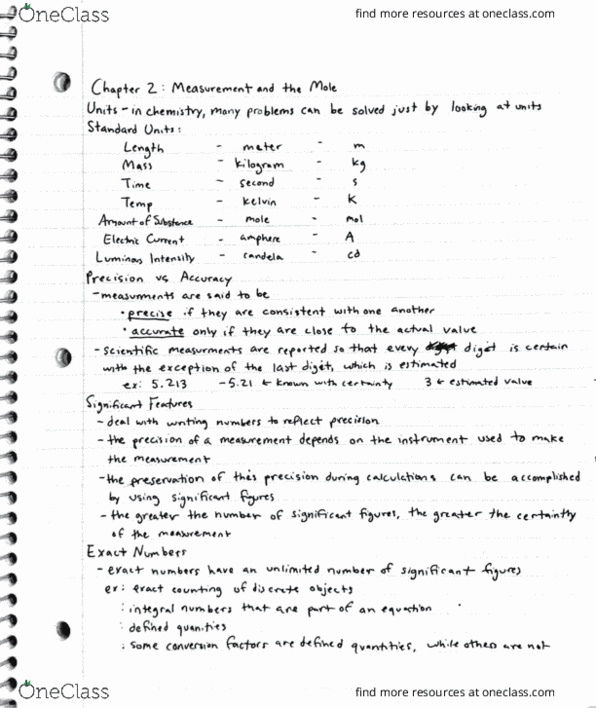 OneClass find more resources at oneclass.com
Chapter 2: Measurement and the Mole
Units - in chemistry, many problems can be solved just by looking at units
Standard Units:
Length - meter - m
Mass - kilogram - kg
Time - second - s
Temp - kelvin - K
Amount of Substance - mole - mol
Electric Current - amphere - A
Luminous Intensity - candela - cd
Precision vs Accuracy
- measurments are said to be
• precise if they are consistent with one another
• accurate only if they are close to the actual value
- scientific measurments are reported so that every digit is certain
with the exception of the last digit, which is estimated
ex: 5.213 - 5.21 ← known with certainty 3 ← estimated value
Significant Features
- deal with writing numbers to reflect precision
- the precision of a measurement depends on the instrument used to make
the measurement
- the preservation of this precision during calculations can be accomplished
by using significant figures
- the greater the number of significant figures, the greater the certaintly
of the measurement
Exact Numbers
- exact numbers have an unlimited number of significant figures
ex: exact counting of discrete objects
: integral numbers that are part of an equation
: defined quanities
: some conversion factors are defined quantities, while others are not
OneClass find more resources at oneclass.com